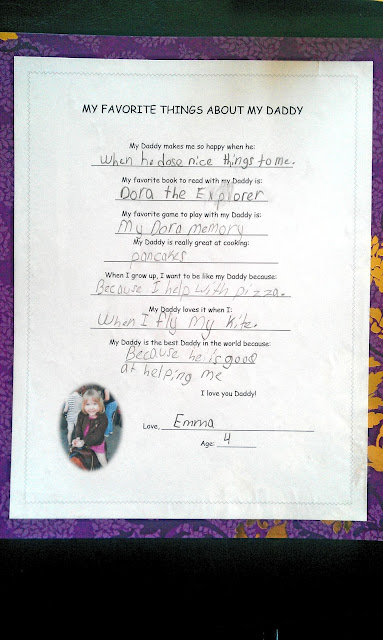 MY FAVORITE THINGS ABOUT MY DADDY
My Daddy makes me so happy when he:
When he dose nice things to me.
My favorite book to read with my Daddy is:
Dora the Explorer
My favorite game to play with my Daddy is:
My Dora memory
My Daddy is really great at cooking:
pancakes
When I grow up, I want to be like my Daddy because:
Because I help with pizza.
My Daddy loves it when I:
When I fly My Kite.
My Daddy is the best Daddy in the world because:
Because he is good
at helping me
I love you Daddy!
Love, Emma
Age: 4